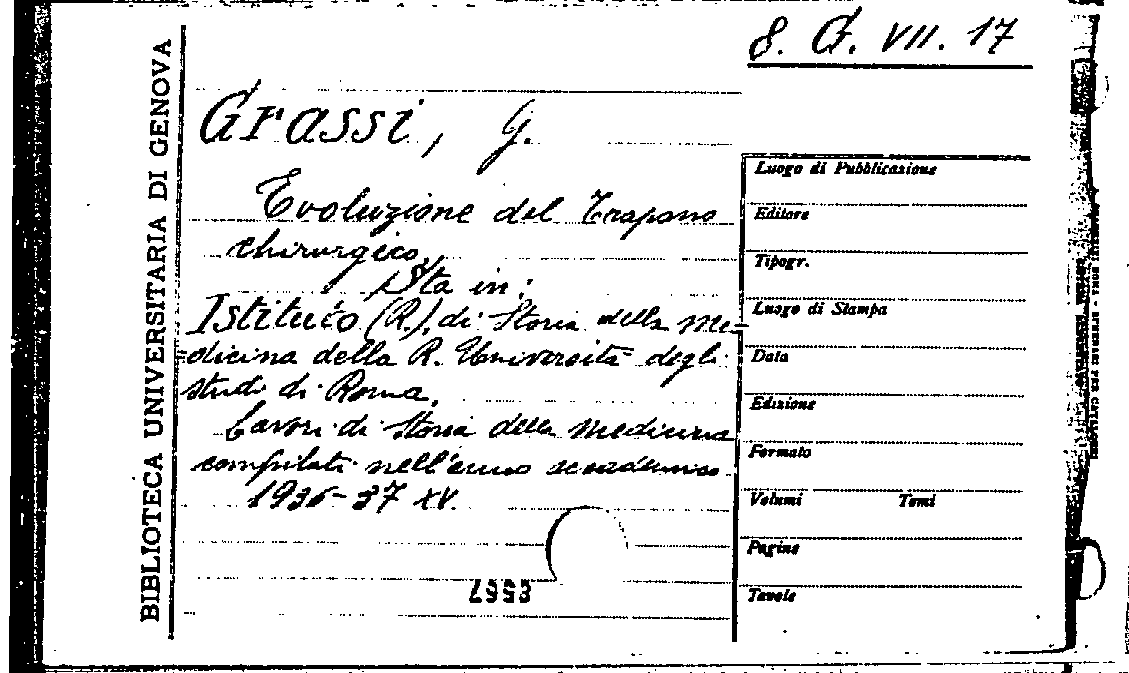 8. G. VII. 17
BIBLIOTECA UNIVERSITARIA DI GENOVA
Grassi, G.
Evoluzione del Trapano
chirurgico.
Sta in:
Istituto (R.), di Storia della Me-
dicina della R. Università degli
studi di Roma.
Lavori di Storia della Medicina
compilati nell'anno accademico
1936-37 XV.
Luogo di Pubblicazione
Editore
Tipogr.
Luogo di Stampa
Data
Edizione
Formato
Volumi Tomi
Pagine
Tavole